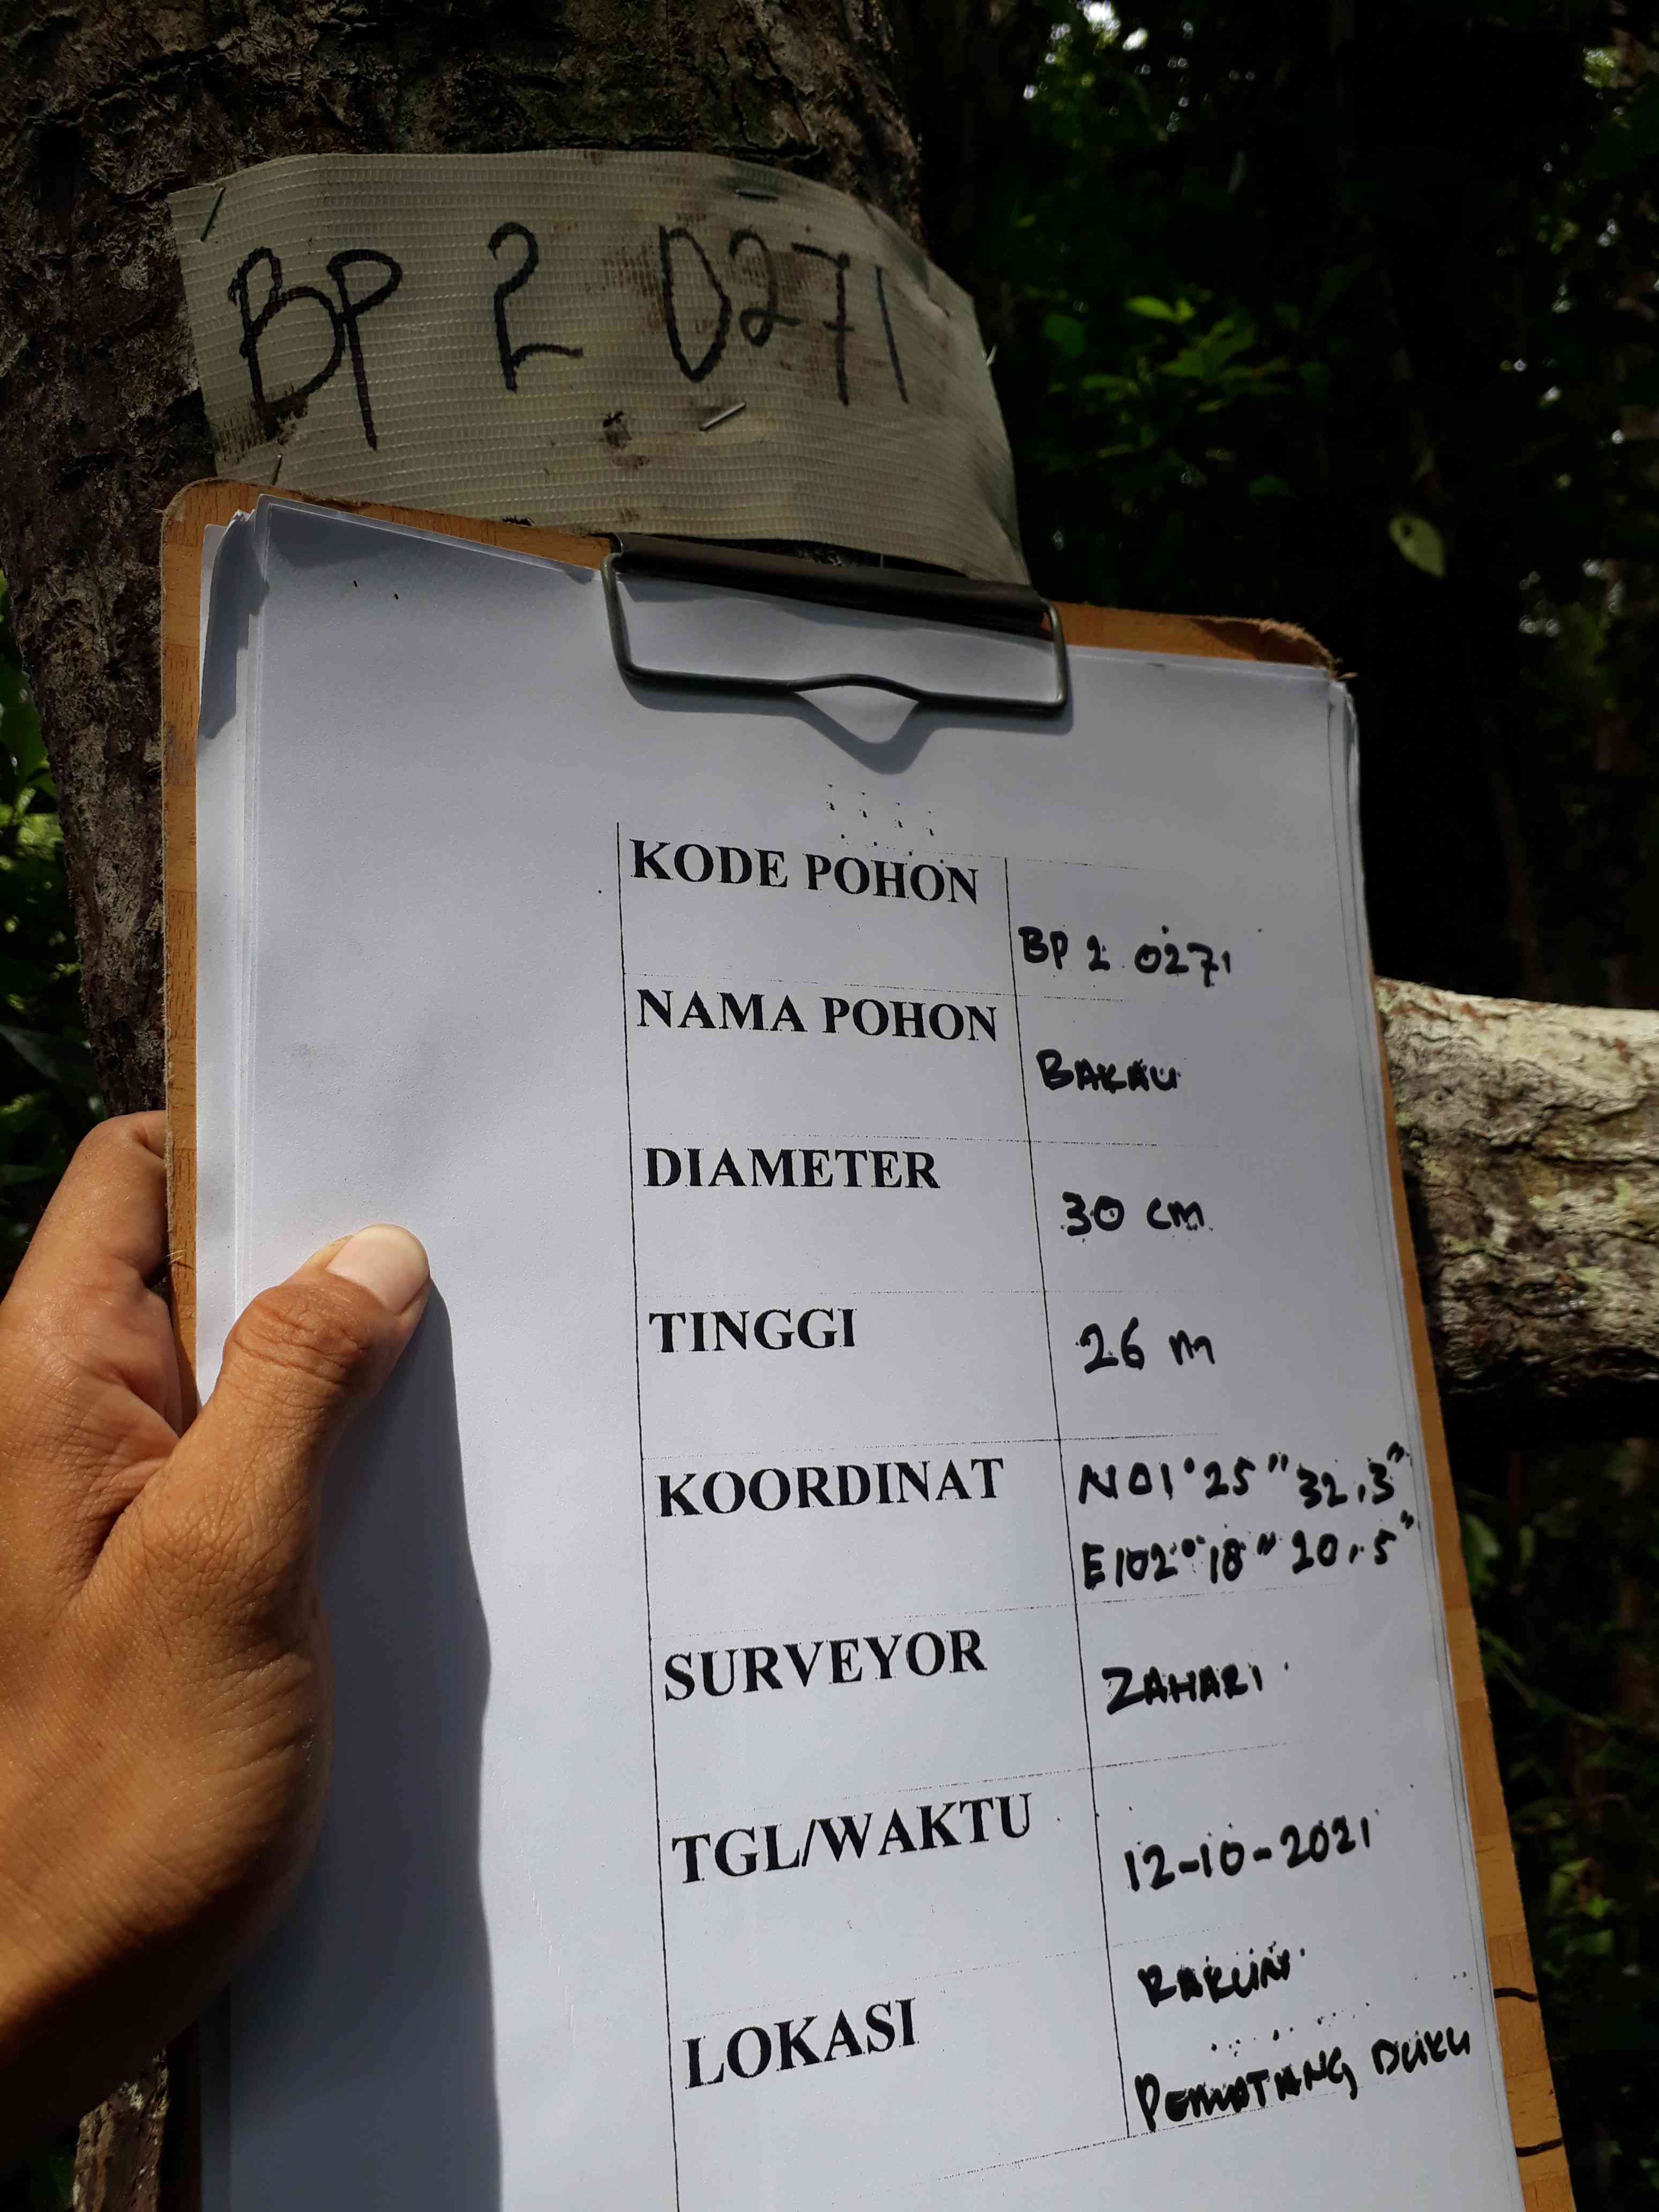 BP 2 0271
KODE POHON
BP 2 0271
NAMA POHON
BAKAU
DIAMETER
30 cm
TINGGI
26 m
KOORDINAT
N01°25"32,3"
E102°18"20,5"
SURVEYOR
ZAHARI
TGL/WAKTU
12-10-2021
LOKASI
PEMATANG DUKU